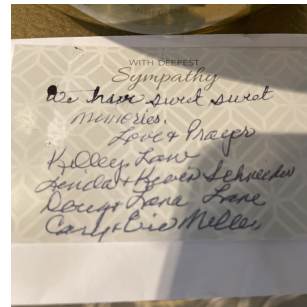 WITH DEEPEST
Sympathy
We have sweet sweet
memories.
Love & Prayer
Kelley Law
Linda & Kevin Schneider
Doug & Lana Lane
Cary & Eric Miller